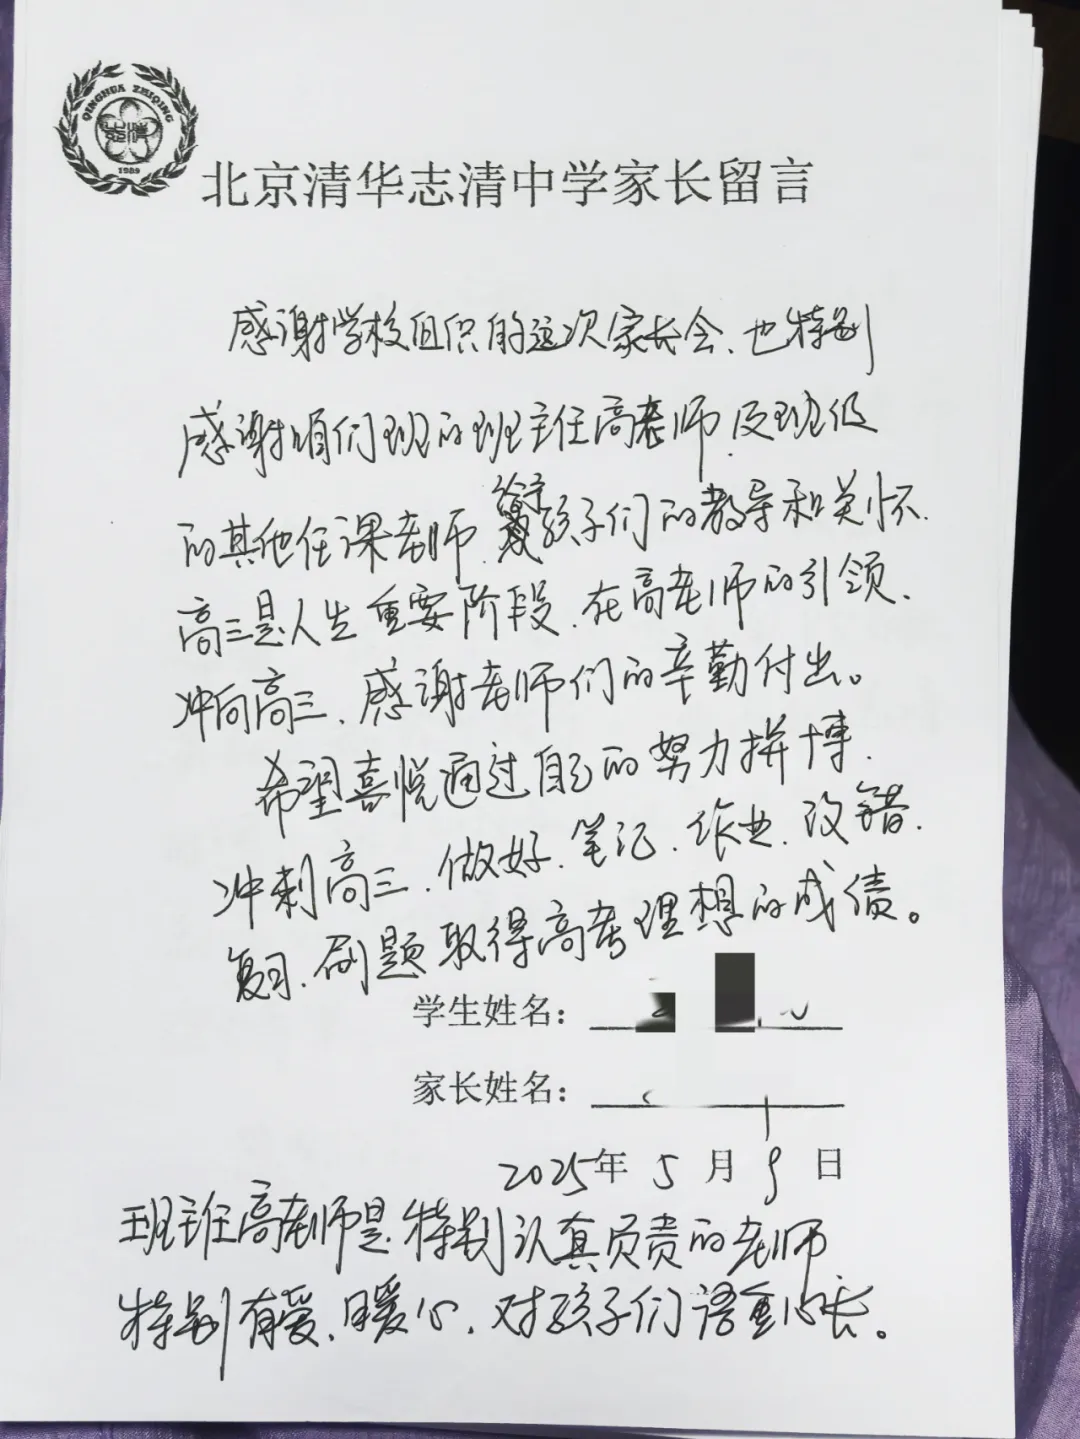 QINGHUA ZHIQING
1989
北京清华志清中学家长留言
感谢学校组织的这次家长会、也特别
感谢咱们班的班主任高老师、及班级
的其他任课老师、给予孩子们的教导和关怀、
高三是人生重要阶段、在高老师的引领、
冲向高三、感谢老师们的辛勤付出。
希望喜悦通过自己的努力拼博、
冲刺高三、做好、笔记、作业、改错、
复习、刷题取得高考理想的成绩。
学生姓名：
家长姓名：
2025年 5 月 9 日
班主任高老师是特别认真负责的老师
特别有爱、暖心、对孩子们语重心长。